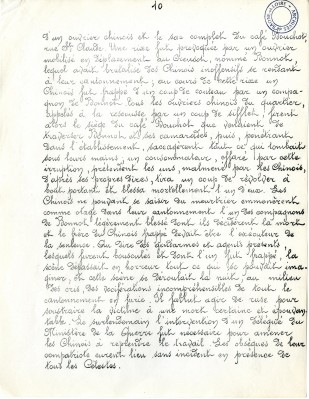 10
d'un ouvrier chinois et le sac complet du café Bouchot,
rue St Claude. Une rixe fut provoquée par un ouvrier
mobilisé en déplacement au Creusot, nommé Bonnot,
lequel avait brutalisé des Chinois inoffensifs se rendant
à leur cantonnement; au cours de cette rixe un
Chinois fut frappé d'un coup de couteau par un compa-
gnon de Bonnot. Tous les ouvriers chinois du quartier,
appelés à la rescousse par un coup de sifflet, firent
alors le siège du café Bouchot que venaient de
traverser Bonnot et ses camarades, puis, pénétrant
dans l'établissement, saccagèrent tout ce qui tombait
sous leurs mains; un consommateur, effaré par cette
irruption, prétendent les uns, malmené par les Chinois,
d'après ses propres dires, tira un coup de révolver à
bout portant et blessa mortellement l'un d'eux. Les
Chinois ne pouvant se saisir du meurtrier emmenèrent
comme otage dans leur cantonnement l'un des compagnons
de Bonnot, légèrement blessé dont ils décidèrent la mort
et le frère du Chinois frappé devait être l'exécuteur de
la sentence. Au dire des gendarmes et agents présents
lesquels furent bousculés et dont l'un fut frappé, la
scène dépassait en horreur tout ce que l'on pouvait ima-
giner, et cette scène se déroulait la nuit, au milieu
des cris, des vociférations incompréhensibles de tout le
cantonnement en furie. Il fallut agir de ruse pour
soustraire la victime à une mort certaine et épouvan-
table. Le surlendemain l'intervention d'un Délégué du
Ministère de la Guerre fut nécessaire pour amener
les Chinois à reprendre le travail. Les obsèques de leur
compatriote eurent lieu sans incident en présence de
tous les Célestes.